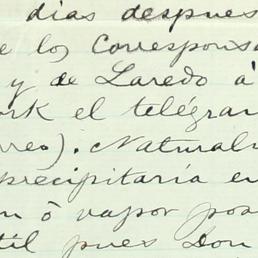 dias despues
e los Corresponsa
y de Laredo á
ork el telégra
rreo). Natural
precipitaria en
n ó vapor pos
til pues Don